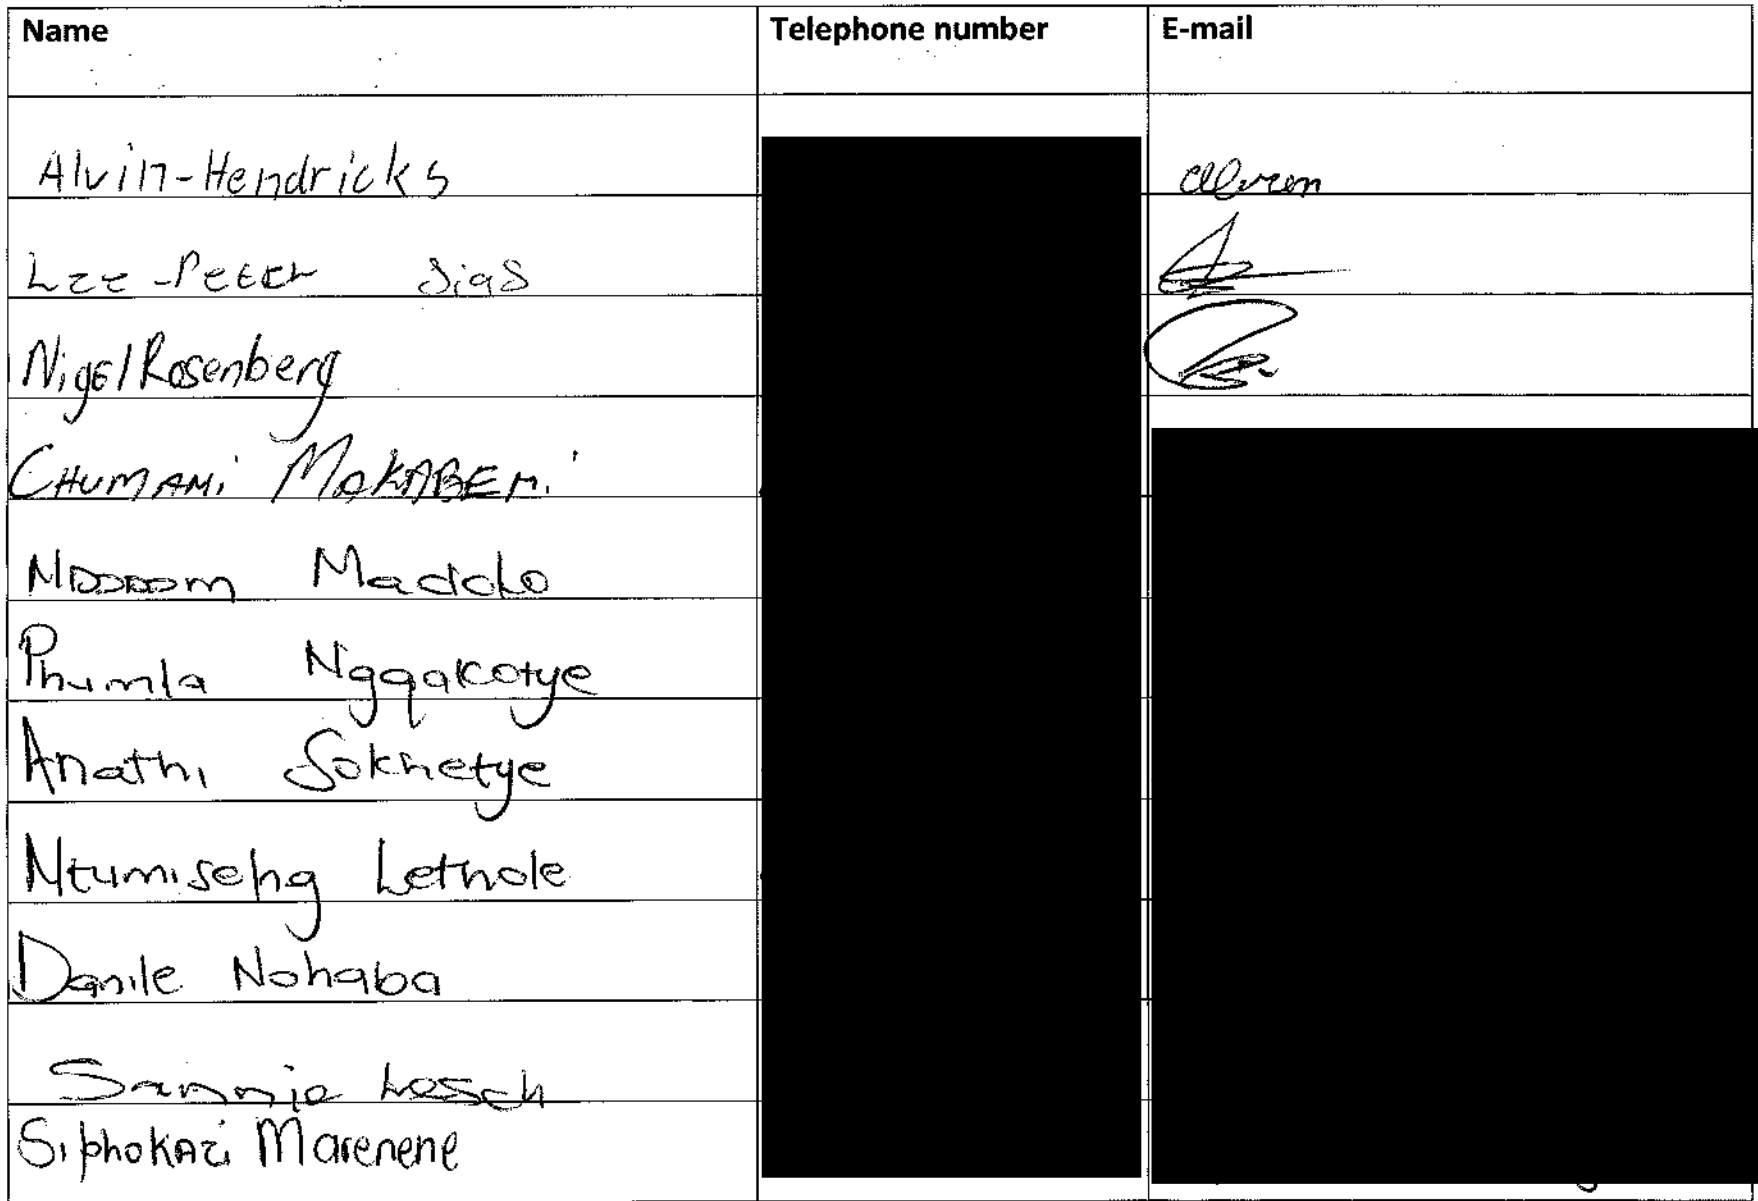 Name Telephone number E-mail
Alvin-Hendricks
Lee-Peter Sias
Nigel Rosenberg
CHUMANi
Maddlo
Phumla Ngqakotye
Anathi Sokhetye
Ntumiseng Lethole
Danile Nohaba
Sammie Lesch
Siphokazi Marenene